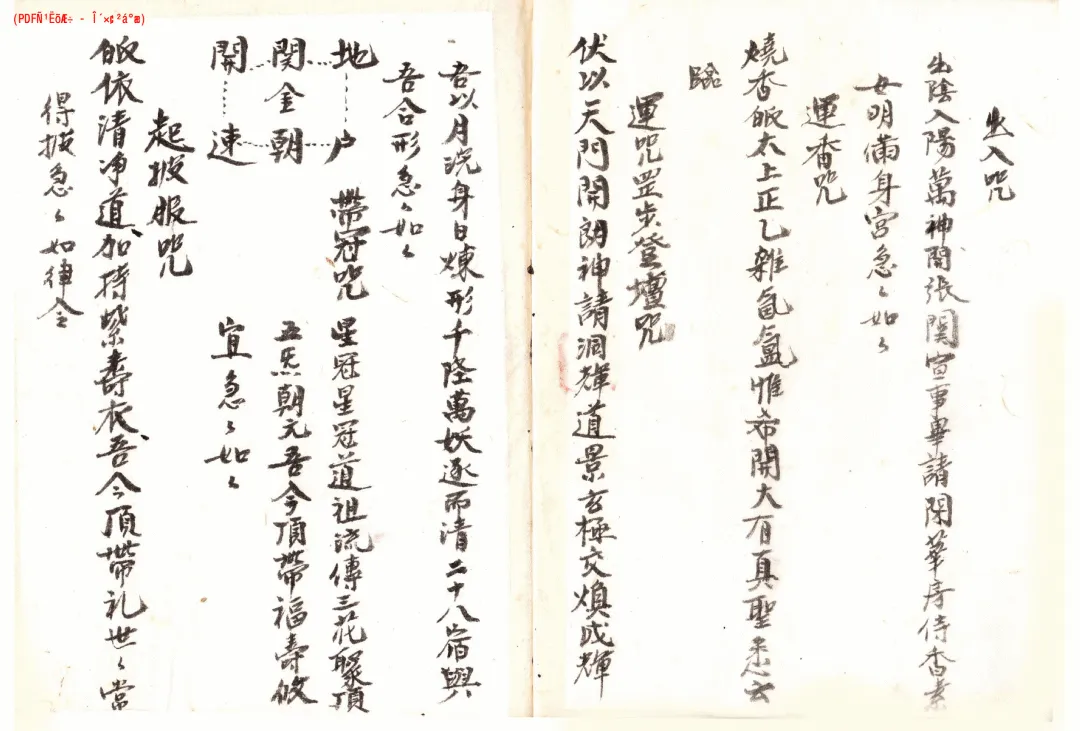 出入咒
出陰入陽萬神開張関宣事畢請閉華房侍香素
女明備身宮急〻如〻
運香咒
燒香皈太上正乙雜氤氳惟希開大有真聖悉云
臨
運咒罡步登壇咒
伏以天門開朗神請洞輝道景玄極交煥成輝
吾以月洗身日煉形千陸萬妖逐而清二十八宿與
吾合形急〻如〻
地户
関金朝
開速
帶冠咒
星冠星冠道祖流傳三花聚頂
五炁朝元吾今頂帶福壽攸
宜急〻如〻
起披服咒
皈依清净道加持紫壽衣吾今頂帶礼世〻當
得披急〻如律令